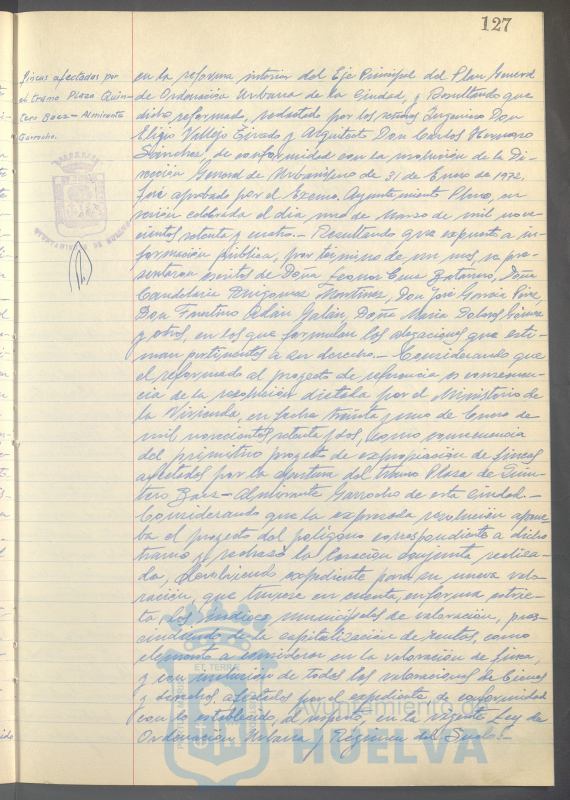 127
fincas afectadas por
el tramo Plaza Quin-
tero Baez - Almirante
Garrocho.
en la reforma interior del Eje Principal del Plan General
de Ordenación Urbana de la Ciudad, y Resultando que
dicho reformado, redactado por los señores Ingeniero Don
Eligio Vallejo y Arquitecto Don Carlos Hermoso
Sánchez, de conformidad con la resolución de la Di-
rección General de Urbanismo de 31 de Enero de 1972,
fué aprobado por el Excmo. Ayuntamiento Pleno, en
sesión celebrada el día uno de Marzo de mil nove-
cientos setenta y cuatro.- Resultando que expuesto a in-
formación pública, por término de un mes, se pre-
sentaron escritos de Doña Leonor Cruz, Doña
Candelaria Martínez, Don José García Pérez,
Don Faustino Galán, Doña María Dolores Gómez
y otros, en los que formulan las alegaciones que esti-
man pertinentes a su derecho.- Considerando que
el reformado al proyecto de referencia es consecuen-
cia de la resolución dictada por el Ministerio de
la Vivienda, en fecha treinta y uno de Enero de
mil novecientos setenta y dos, como consecuencia
del primitivo proyecto de expropiación de fincas
afectadas por la apertura del tramo Plaza de Quin-
tero Baez - Almirante Garrocho de esta Ciudad.-
Considerando que la expresada resolución aproba-
ba el proyecto del polígono correspondiente a dicho
tramo y rechazó la tasación conjunta realiza-
da, devolviendo expediente para su nueva valo-
ración, que tuviese en cuenta, en forma estric-
ta los índices municipales de valoración, pres-
cindiendo de la capitalización de rentas, como
elemento a considerar en la valoración de fincas,
y con inclusión de todas las valoraciones de bienes
y derechos afectados por el expediente de conformidad
con lo establecido, al respecto, en la vigente Ley de
Ordenación Urbana y Régimen del Suelo.-
ET TERRA
Ayuntamiento de
HUELVA